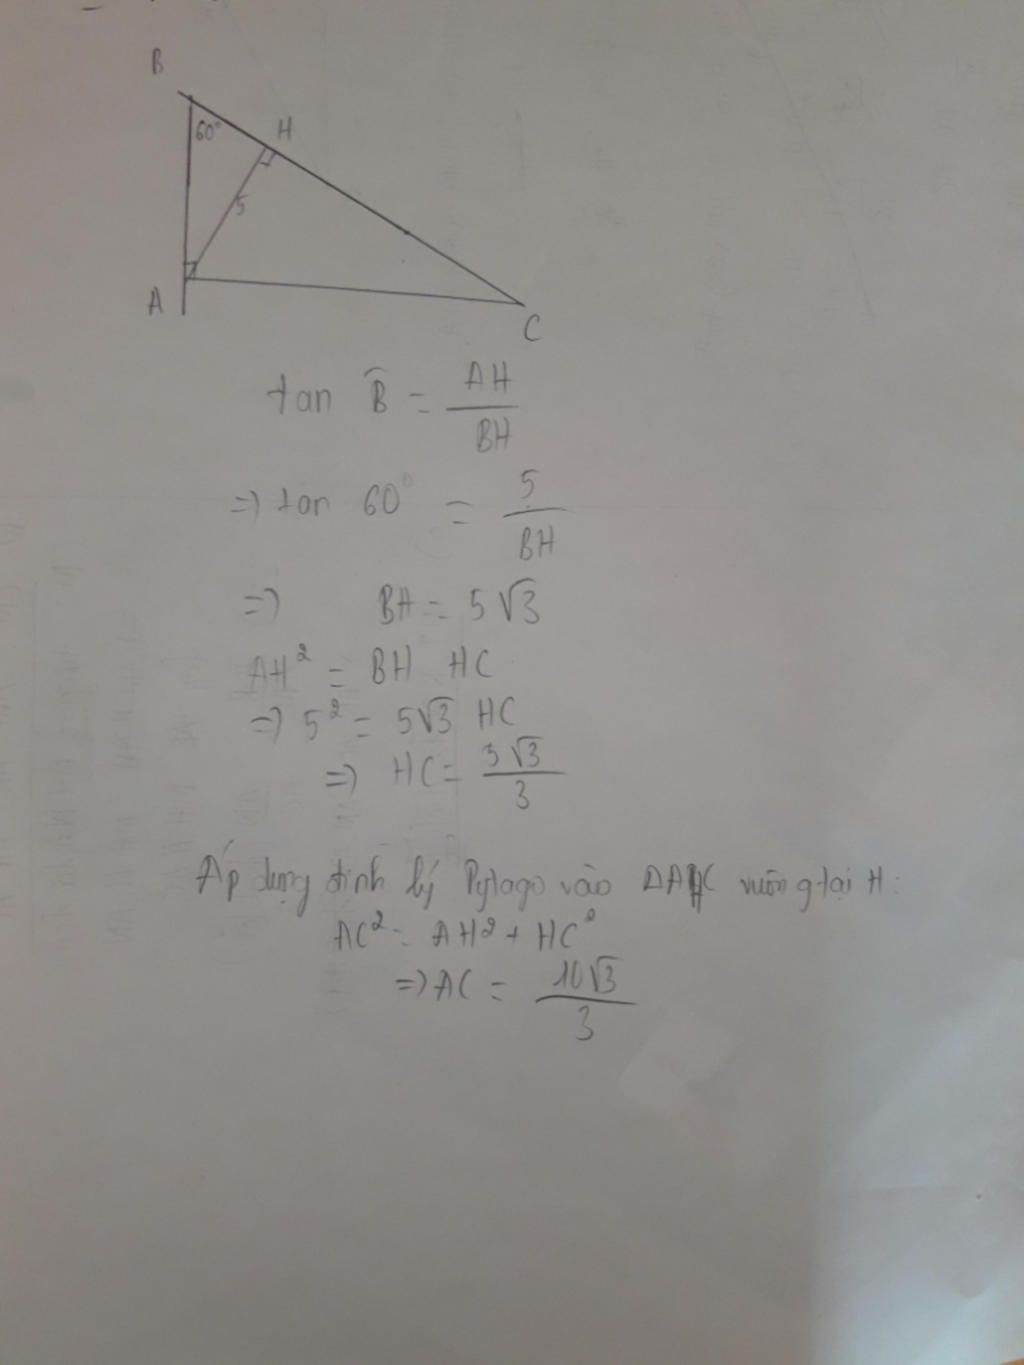 B
60°
H
5
A
C
tan B̂ = AH/BH
=> tan 60° = 5/BH
=> BH = 5√3
AH² = BH HC
=> 5² = 5√3 HC
=> HC = 5√3/3
Áp dụng định lý Pytago vào ΔAHC vuông tại H:
AC² = AH² + HC²
=> AC = 10√3/3